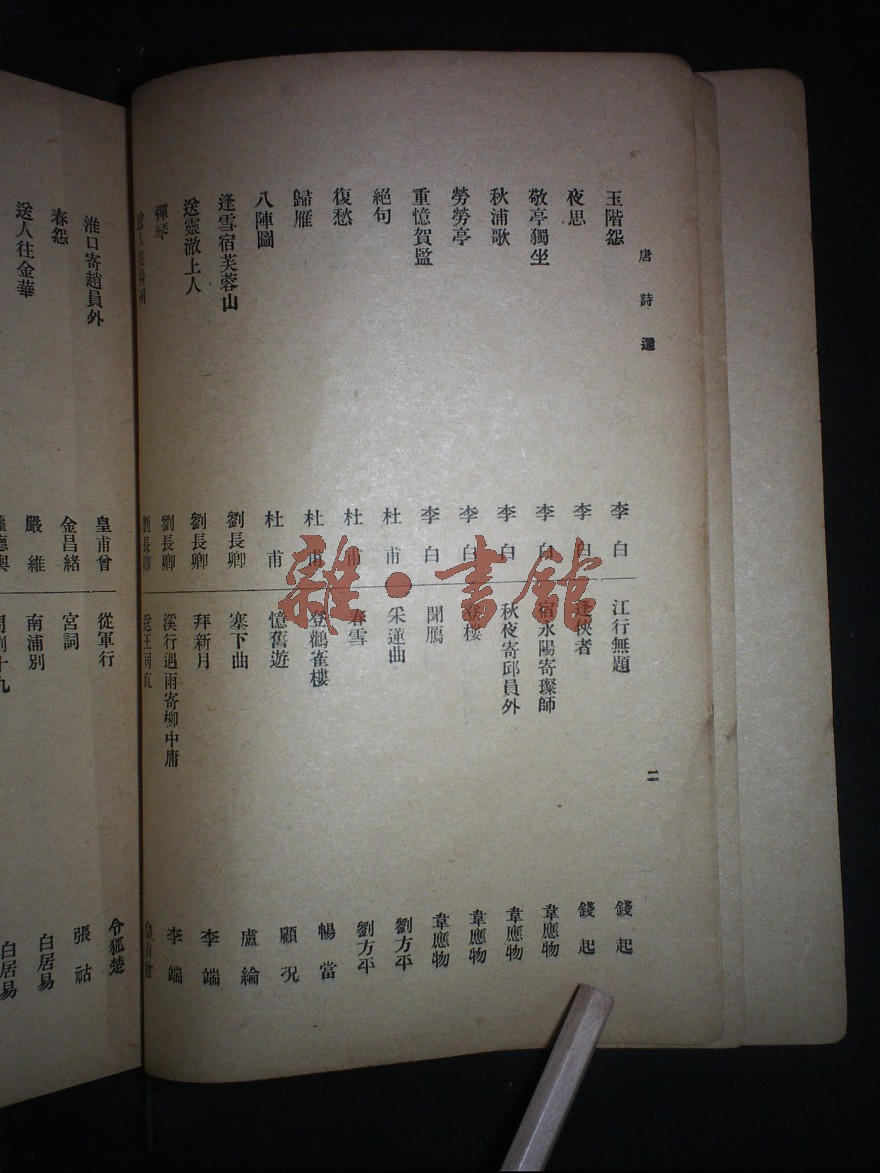 唐詩選
二
玉階怨 李白
夜思 李白
敬亭獨坐 李白
秋浦歌 李白
勞勞亭 李白
重憶賀監 李白
絕句 杜甫
復愁 杜甫
歸雁 杜甫
八陣圖 杜甫
逢雪宿芙蓉山 劉長卿
送靈澈上人 劉長卿
彈琴 劉長卿
送人往揚州 劉長卿
江行無題 錢起
逢俠者 錢起
宿永陽寄璨師 韋應物
秋夜寄邱員外 韋應物
登樓 韋應物
聞鴈 韋應物
采蓮曲 劉方平
春雪 劉方平
登鸛雀樓 暢當
憶舊遊 顧况
塞下曲 盧綸
拜新月 李端
溪行過雨寄柳中庸 李端
送王司直 皇甫曾
淮口寄趙員外 皇甫曾
春怨 金昌緒
送人往金華 嚴維
從軍行 令狐楚
宮詞 張祜
南浦別 白居易
白居易
雜·書館